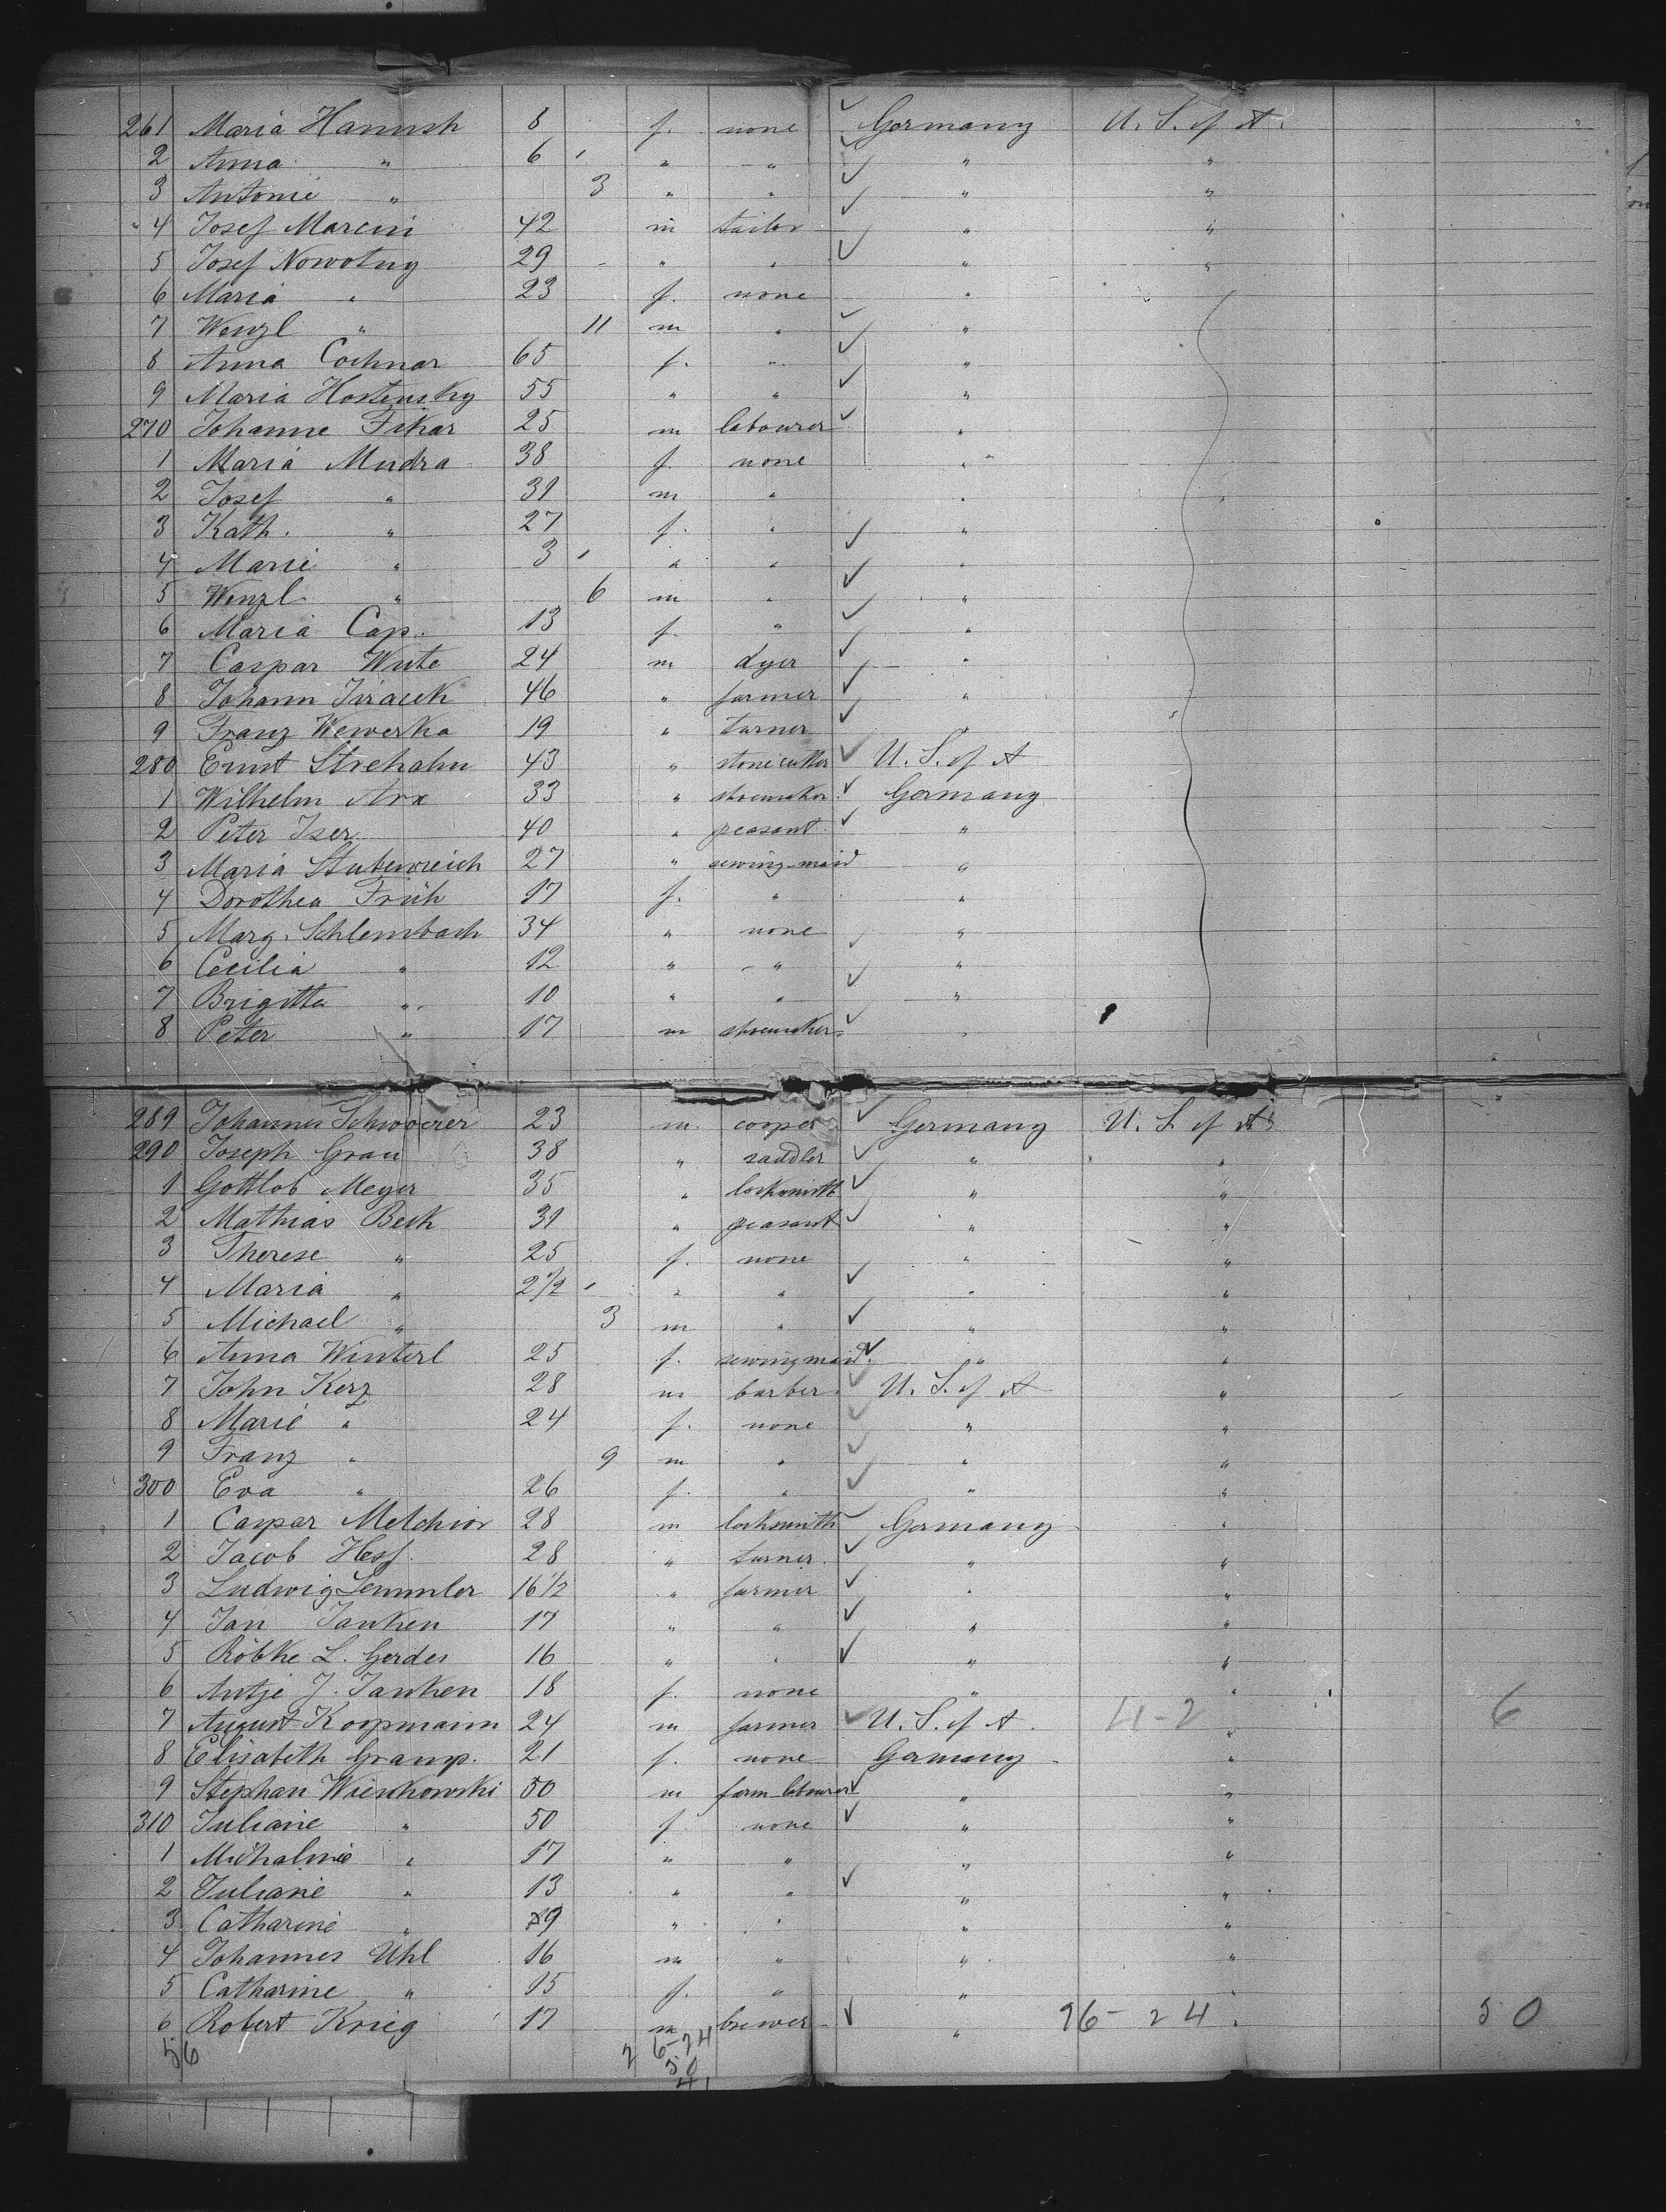 261 Maria Hanush 8 f. none Germany U. S. of A.
2 Anna " 6 " " " "
3 Antonie " 3 " " " "
4 Josef Marcini 42 m tailor " "
5 Josef Nowotny 29 " " " "
6 Maria " 23 f. none "
7 Wenzl " 11 m " "
8 Anna Cochnar 65 f. " "
9 Maria Hostensky 55 " " "
270 Johanne Fikar 25 m labourer "
1 Maria Mudra 38 f. none "
2 Josef " 31 m " "
3 Kath. " 27 f. " "
4 Marie " 3 " " "
5 Wenzl " 6 m " "
6 Maria Cap. 13 f. " "
7 Caspar Wute 24 m dyer "
8 Johann Jiracek 46 " farmer "
9 Franz Wewerka 19 " turner "
280 Ernst Strehahn 43 " stonecutter U. S. of A
1 Wilhelm Arx 33 " shoemaker Germany
2 Peter Iser 40 " peasant "
3 Maria Stubenreich 27 " sewing-maid "
4 Dorothea Früh 17 f. " "
5 Marg. Schlembach 34 " none "
6 Cecilia " 12 " " "
7 Brigitta " 10 " " "
8 Peter " 17 m shoemaker "
289 Johannes Schwoerer 23 m. cooper Germany U. S. of A
290 Joseph Grau 38 " saddler " "
1 Gottlob Meyer 35 " locksmith " "
2 Mathias Beck 31 " peasant " "
3 Therese " 25 f. none " "
4 Maria " 2 1/2 " " " "
5 Michael " 3 m " " "
6 Anna Winterl 25 f. sewingmaid " "
7 John Kerz 28 m barber U. S. of A "
8 Marie " 24 f. none " "
9 Franz " 9 m " " "
300 Eva " 26 f. " " "
1 Caspar Melchior 28 m locksmith Germany "
2 Jacob Hess 28 " turner " "
3 Ludwig Semmler 16 1/2 " farmer " "
4 Jan Janken 17 " " " "
5 Röbke L. Gerdes 16 " " " "
6 Antje J. Janken 18 f. none " "
7 August Koopmann 24 m farmer U. S. of A. 4-2 " 6
8 Elisabeth Gramp. 21 f. none Germany "
9 Stephan Wienkowski 50 m farm labourer " "
310 Juliane " 50 f none " "
1 Michaline " 17 " " " "
2 Juliane " 13 " " " "
3 Catharine " 9 " " " "
4 Johannes Uhl 16 m " " "
5 Catharine " 15 f. " " "
6 Robert Krieg 17 m brewer " 26-24 " 50
56 2 6-24
50